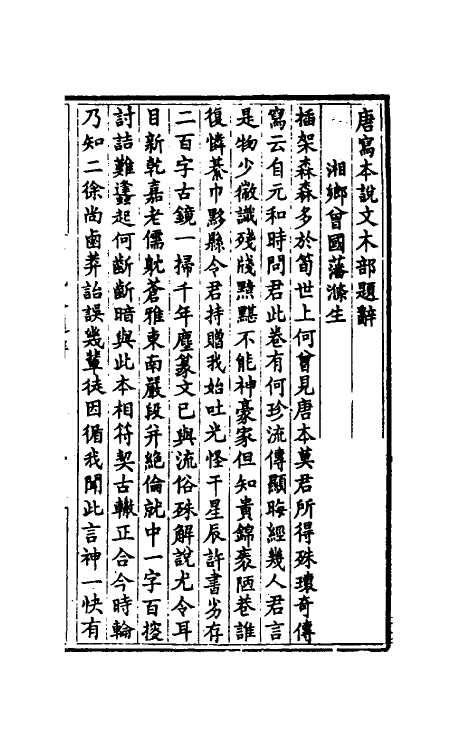 唐寫本說文木部題辭
湘鄉曾國藩滌生
插架森森多於筍世上何曾見唐本莫君所得殊瓌奇傳
寫云自元和時問君此卷有何珍流傳顯晦經幾人君言
是物少微識殘牋黯黮不能神豪家但知貴錦袠陋巷誰
復憐綦巾黟縣令君持贈我始吐光怪干星辰許書劣存
二百字古鏡一掃千年塵篆文已與流俗殊解說尤令耳
目新乾嘉老儒躭蒼雅東南嚴段并絕倫就中一字百搜
討詰難蠭起何齗齗暗與此本相符契古轍正合今時輪
乃知二徐尚鹵莽詒誤幾輩徒因循我聞此言神一快有